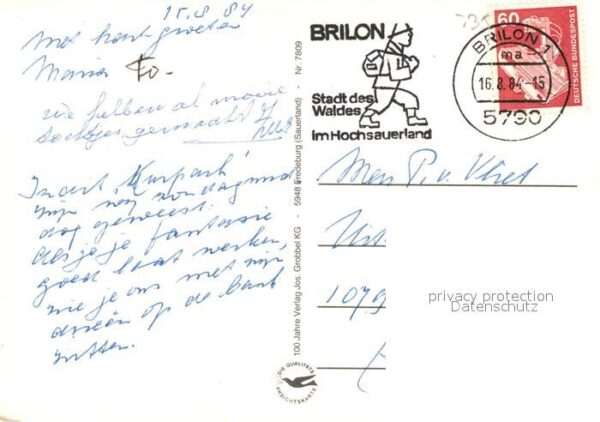 15.8.84
Met hartgroeten
Maria Fo.
We hebben al mooie
tochtjes gemaakt
In dit "Kurpark"
zijn wij zondagmid
dag geweest.
Als je je fantasie
goed laat werken,
zie je ons met zijn
drieën op de bank
zitten.
100 Jahre Verlag Jos. Grobbel KG - 5948 Fredeburg (Sauerland) - Nr. 7809
DIE QUALITÄTS ANSICHTSKARTE
BRILON
Stadt des
Waldes
im Hochsauerland
BRILON 1
ma
16.8.84-15
5790
60
DEUTSCHE BUNDESPOST
Mevr P. v. Vliet
1079
privacy protection
Datenschutz